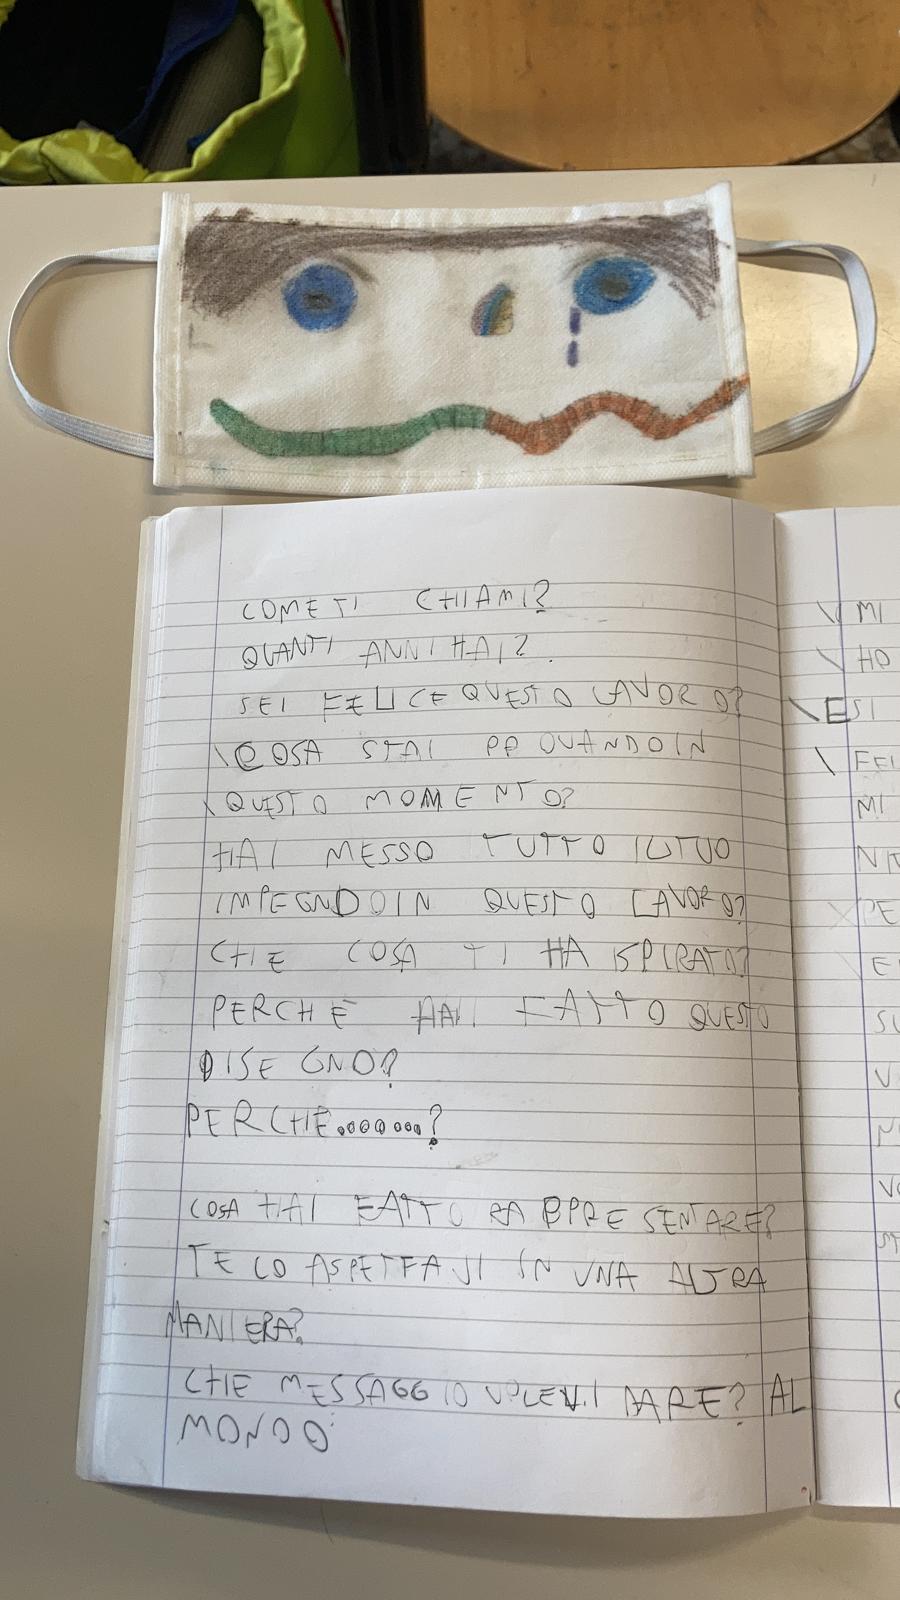 COME TI CHIAMI?
QUANTI ANNI HAI?
SEI FELICE QUESTO LAVORO?
COSA STAI PROVANDO IN
QUESTO MOMENTO?
HAI MESSO TUTTO IL TUO
IMPEGNDO IN QUESTO LAVORO?
CHE COSA TI HA ISPIRATO?
PERCHE HAI FATTO QUESTO
DISEGNO?
PERCHE........?
COSA HAI FATTO RAPPRESENTARE?
TE LO ASPETTAVI IN UNA ALTRA
MANIERA?
CHE MESSAGGIO VOLEVI DARE? AL
MONDO
MI
HO
E SI
FEL
MI
PE
E